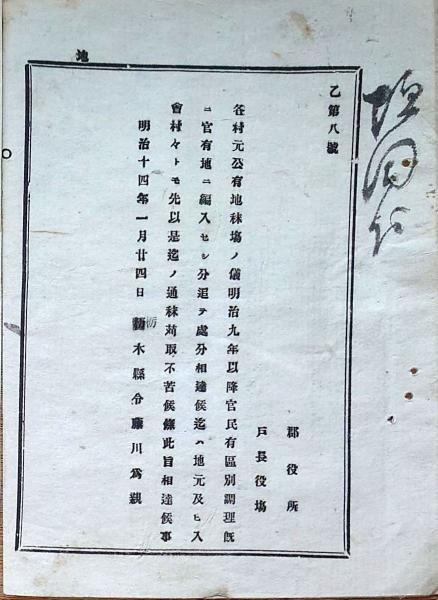 地
乙第八號
郡役所
戸長役塲
各村元公有地秣塲ノ儀明治九年以降官民有區別調理既
ニ官有地ニ編入セシ分追テ處分相達候迄ハ地元及ヒ入
會村々トモ先以是迄ノ通秣苅取不苦候條此旨相達候事
明治十四年一月廿四日 栃木縣令藤川爲親